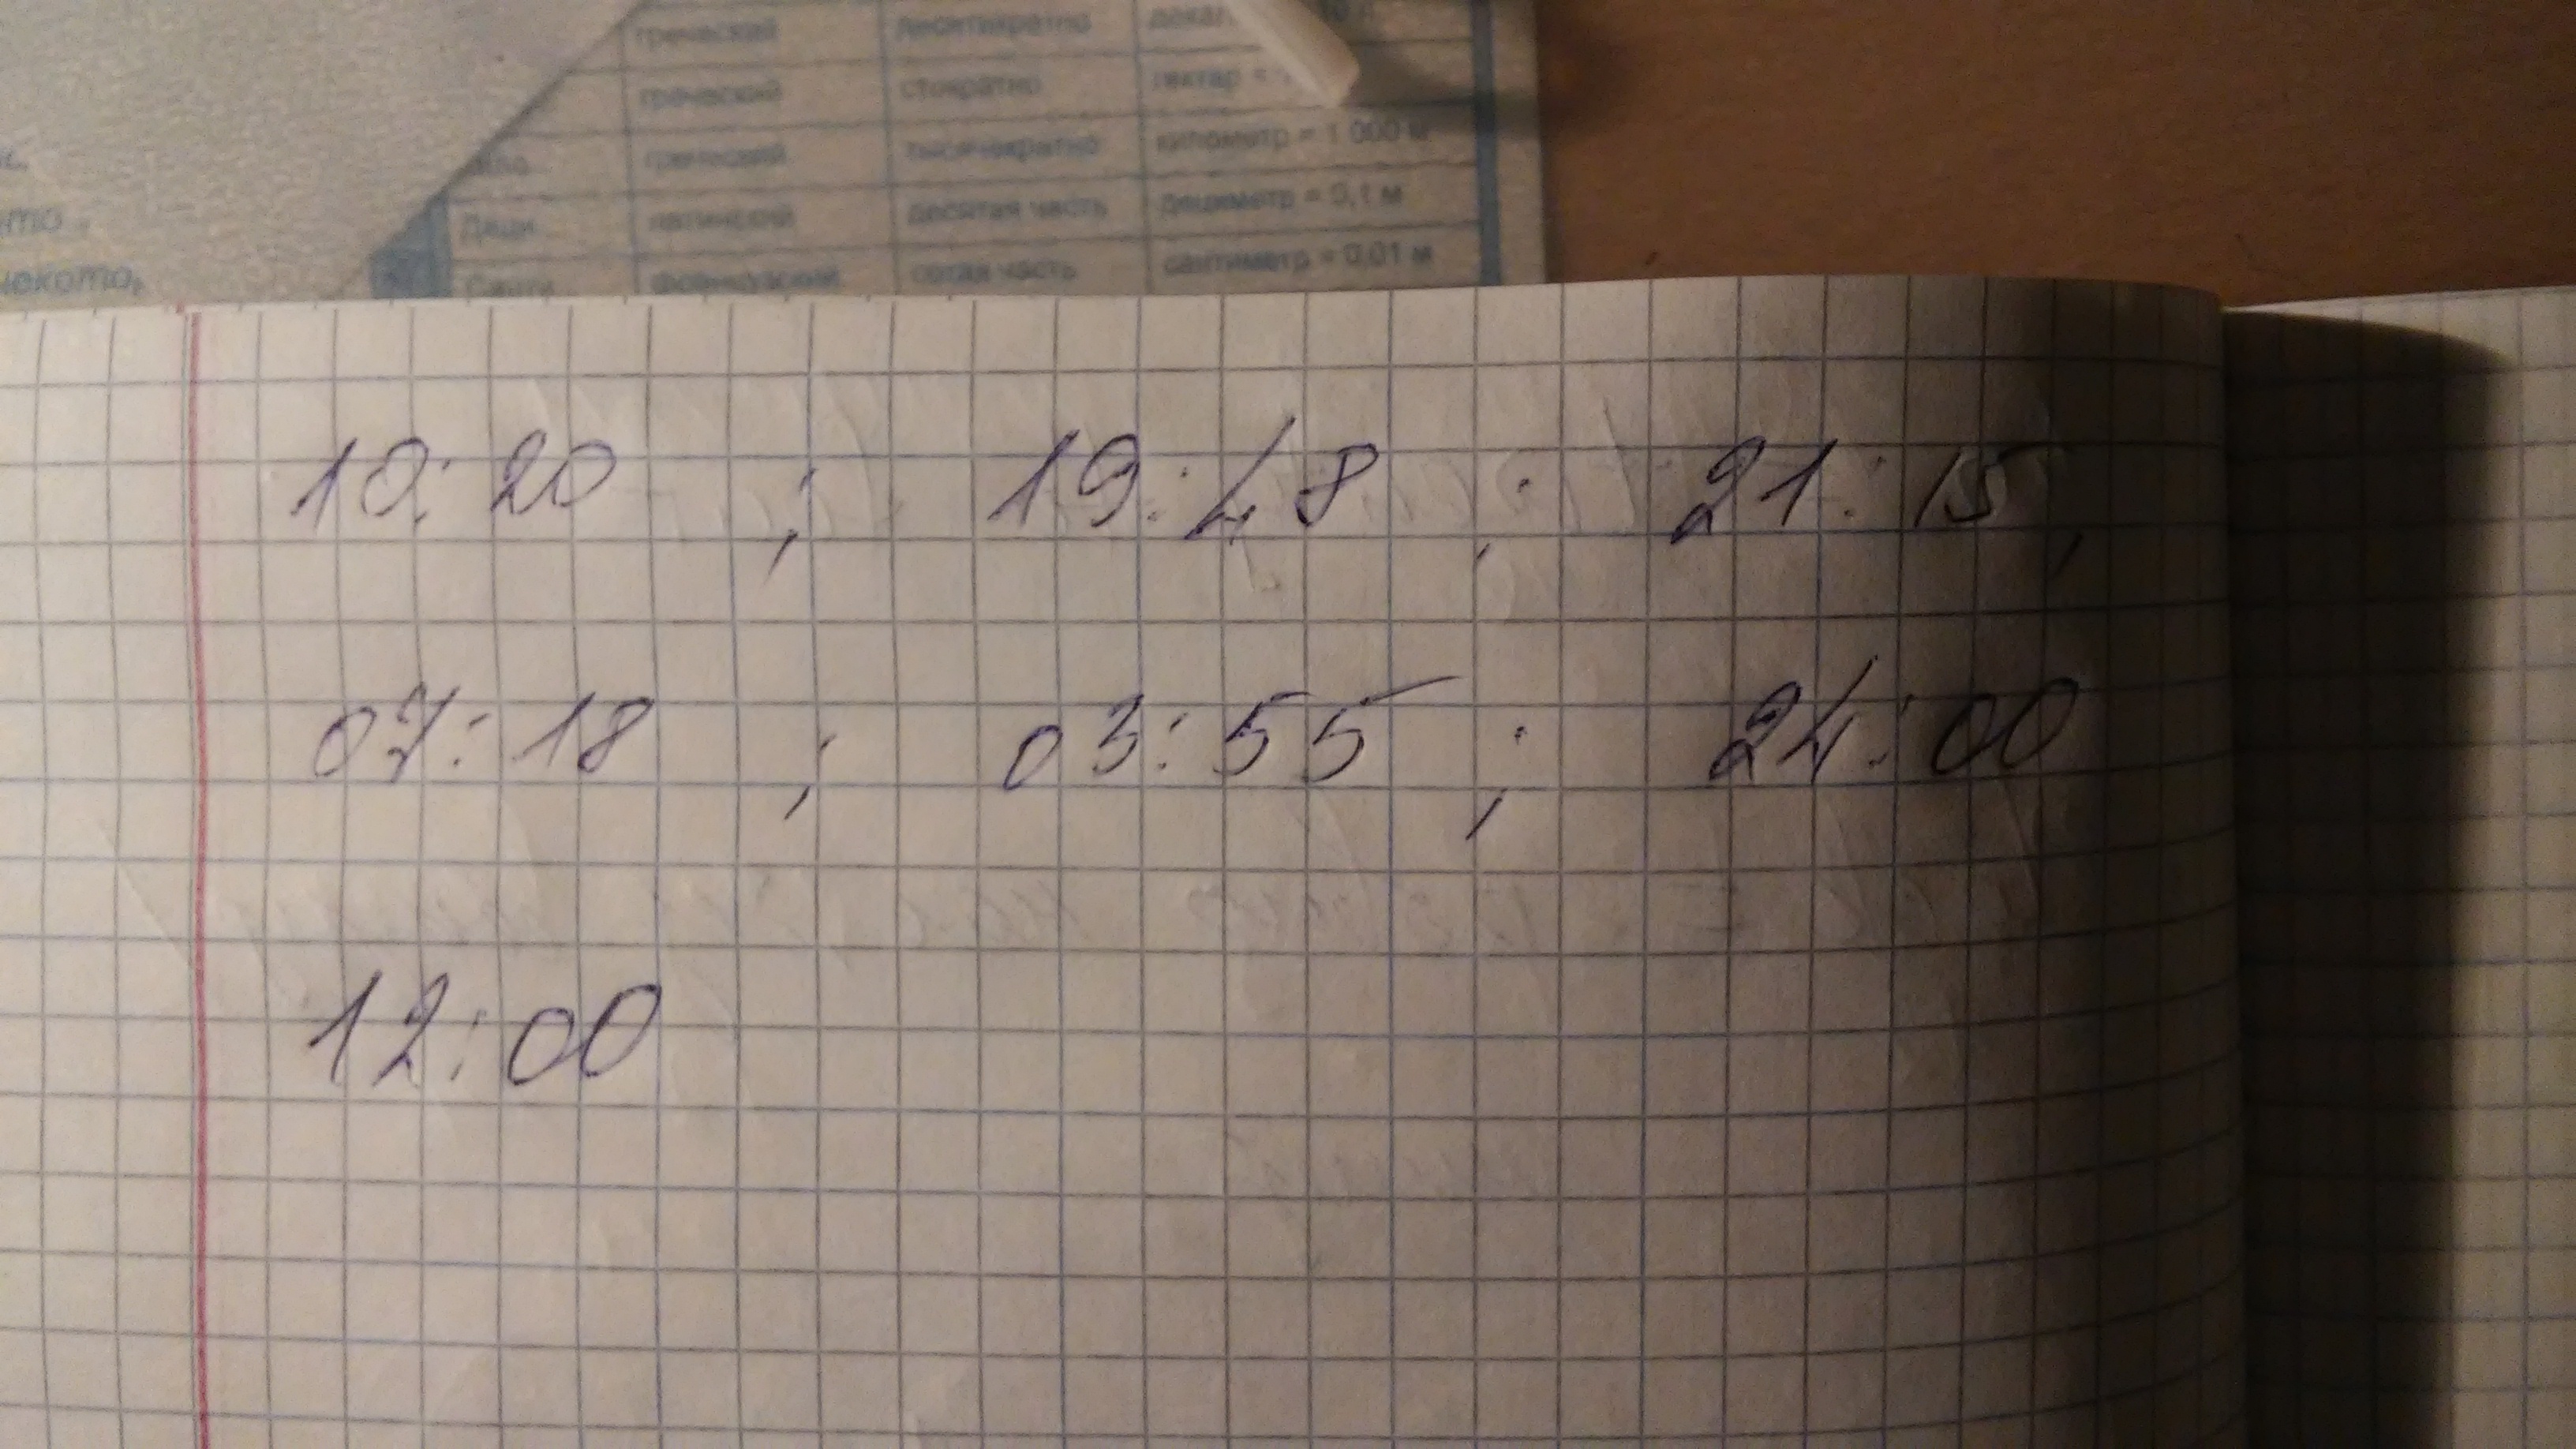 греческий десятикратно
греческий стократно гектар =
греческий тысячекратно километр = 1 000 м
Деци латинский десятая часть дециметр = 0,1 м
Санти французский сотая часть сантиметр = 0,01 м
10:20 ; 19:48 ; 21:15,
07:18 ; 03:55 ; 24:00
12:00